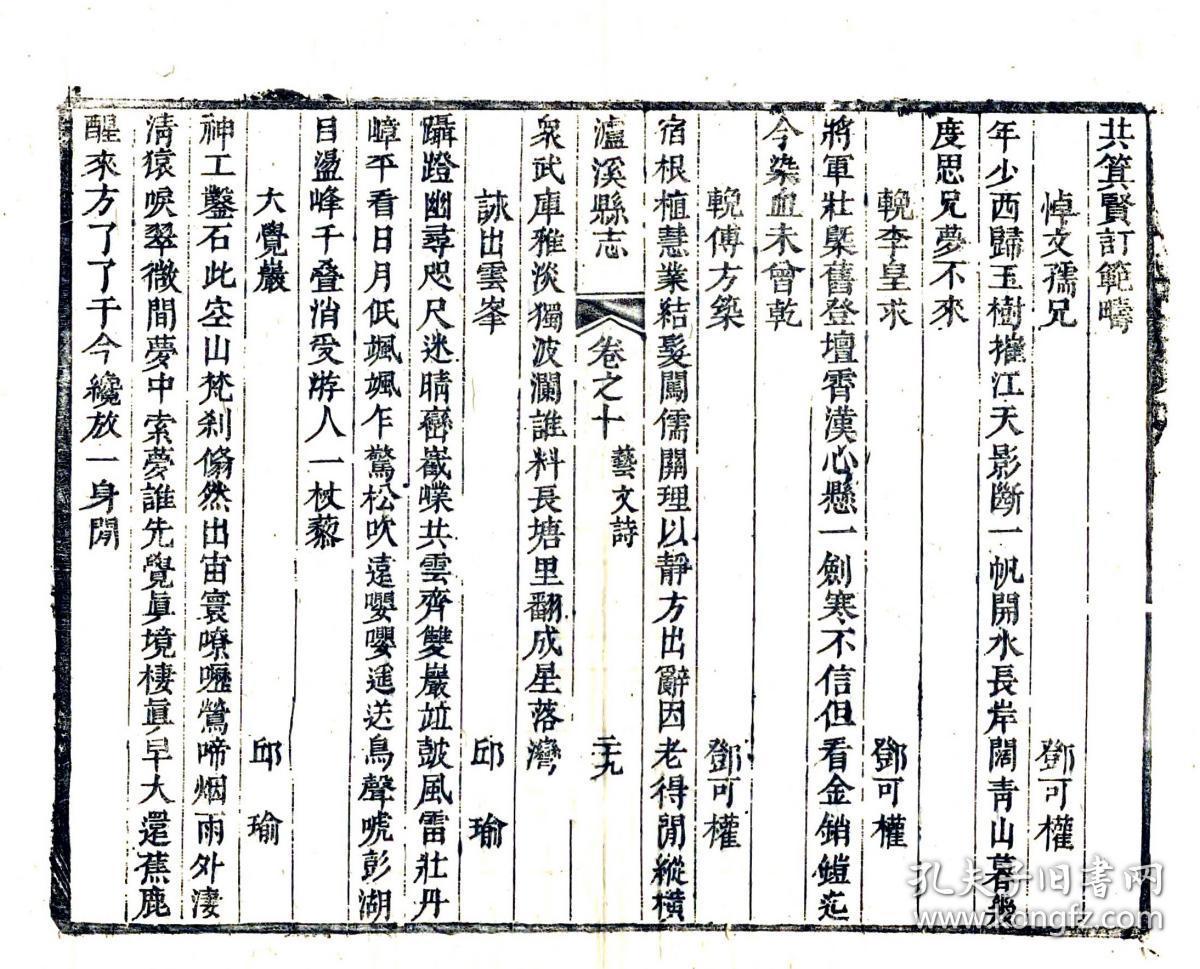 共箕賢訂範疇
悼文孺兄 鄧可權
年少西歸玉樹摧江天影斷一帆開水長岸闊青山暮幾
度思兄夢不來
輓李皇求 鄧可權
將軍壯槩舊登壇霄漢心懸一劍寒不信但看金銷鎧迄
今染血未曾乾
輓傅方築 鄧可權
宿根植慧業結髮闖儒關理以靜方出辭因老得閒縱橫
瀘溪縣志 卷之十 藝文詩 二九
衆武庫雅淡獨波瀾誰料長塘里翻成星落灣
詠出雲峯 邱瑜
躡蹬幽尋咫尺迷晴巒嶻嶫共雲齊雙巖竝鼓風雷壯丹
嶂平看日月低颯颯乍驚松吹遠嚶嚶遞送鳥聲唬彭湖
目盪峰千叠消受游人一杖藜
大覺巖 邱瑜
神工鑿石此空山梵刹翛然出宙寰嘹嚦鶯啼烟雨外淒
清猿唳翠微間夢中索夢誰先覺眞境棲眞早大還蕉鹿
醒來方了了千今纔放一身閒
孔夫子旧书网
www.kongfz.com